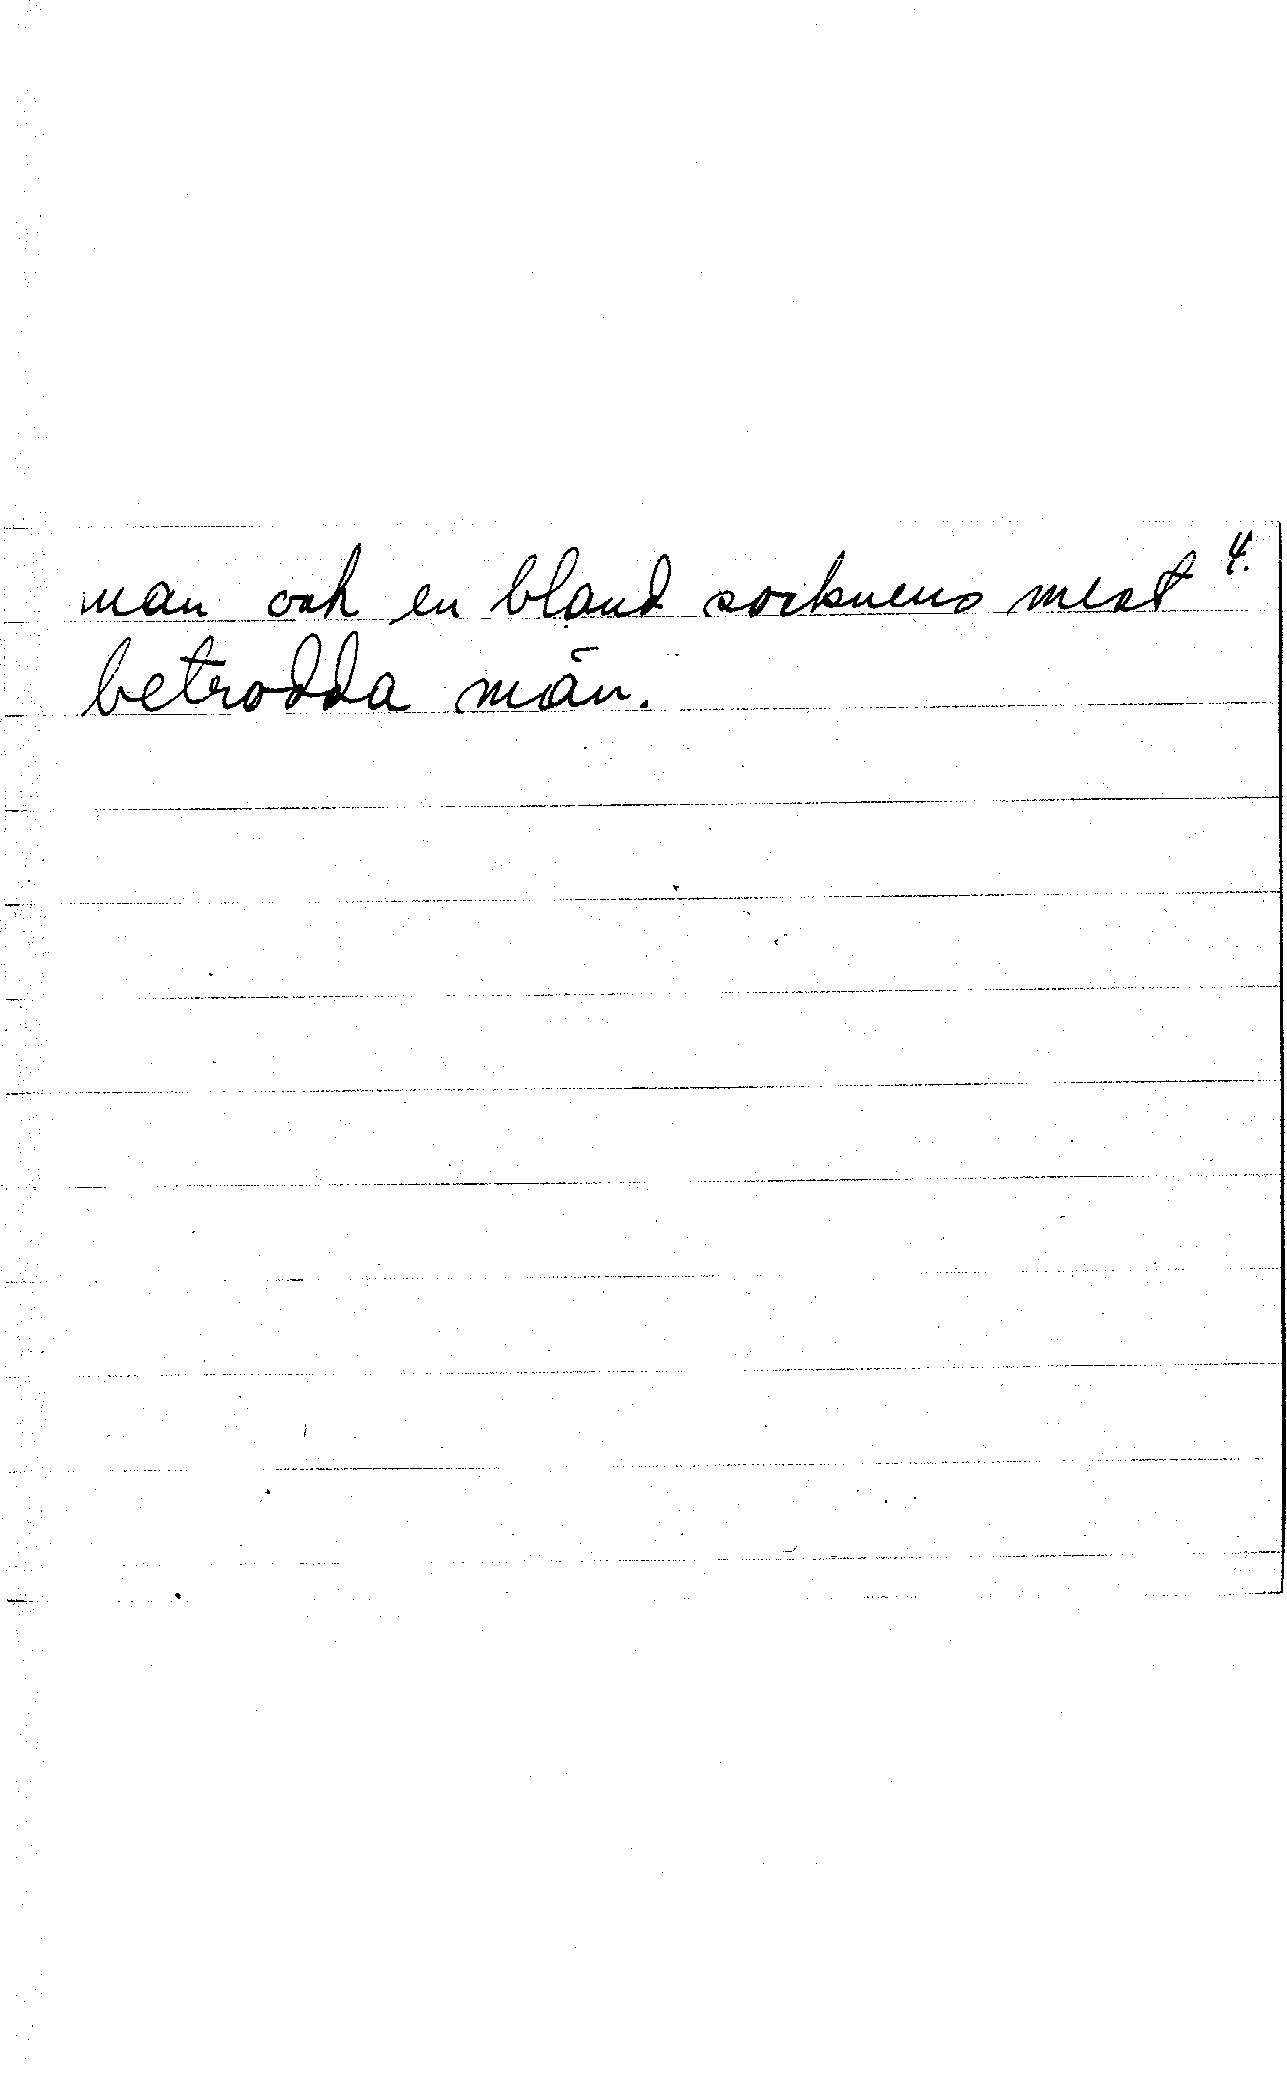 4.
man och en bland socknens mest
betrodda män.